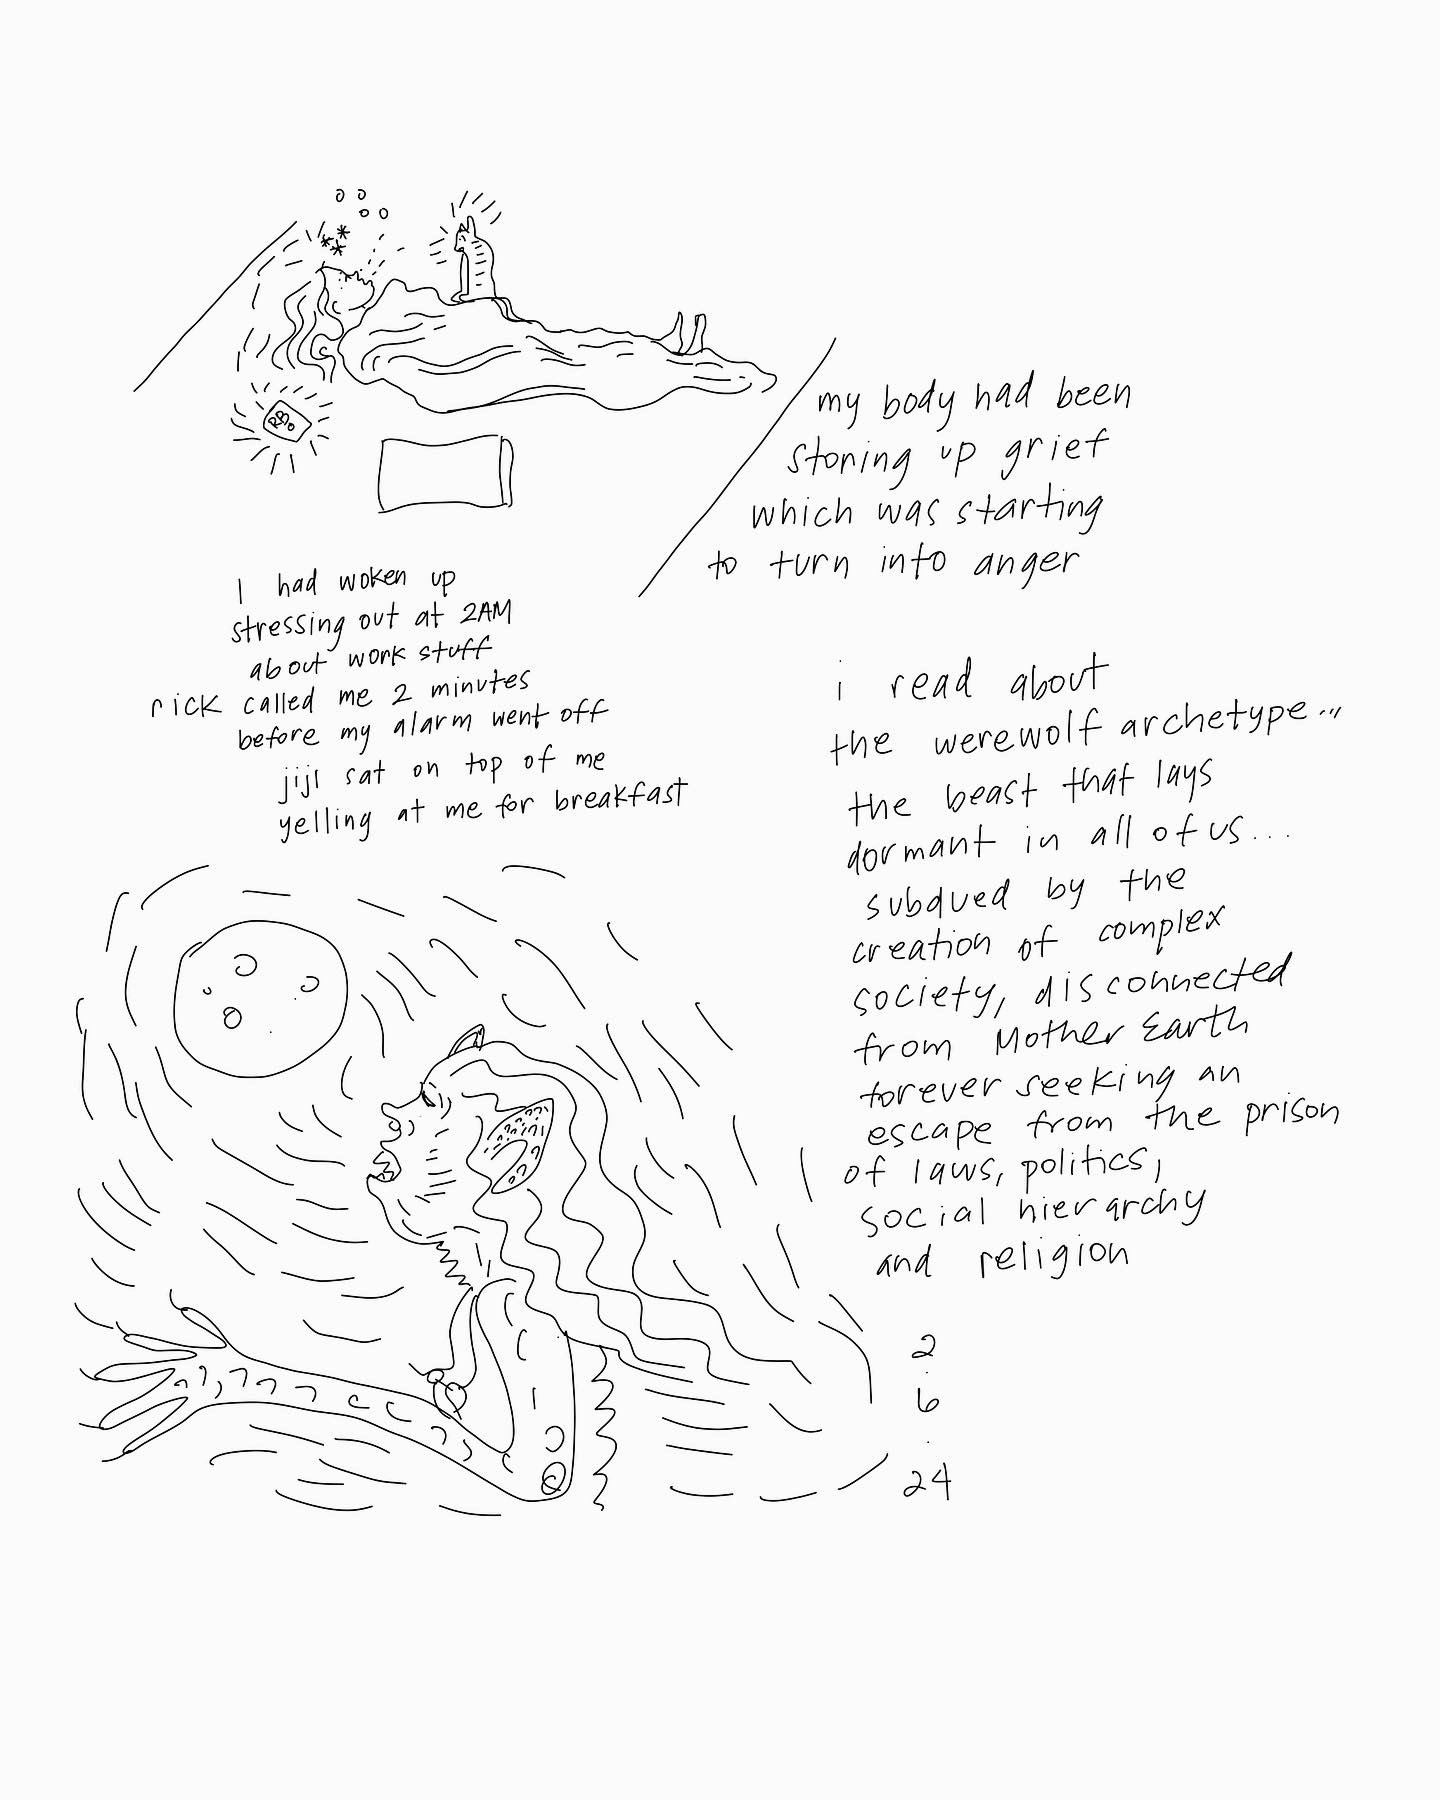 my body had been
storing up grief
which was starting
to turn into anger
I had woken up
stressing out at 2AM
about work stuff
rick called me 2 minutes
before my alarm went off
jiji sat on top of me
yelling at me for breakfast
i read about
the werewolf archetype...
the beast that lays
dormant in all of us...
subdued by the
creation of complex
society, disconnected
from Mother Earth
forever seeking an
escape from the prison
of laws, politics,
social hierarchy
and religion
2
.
6
.
24